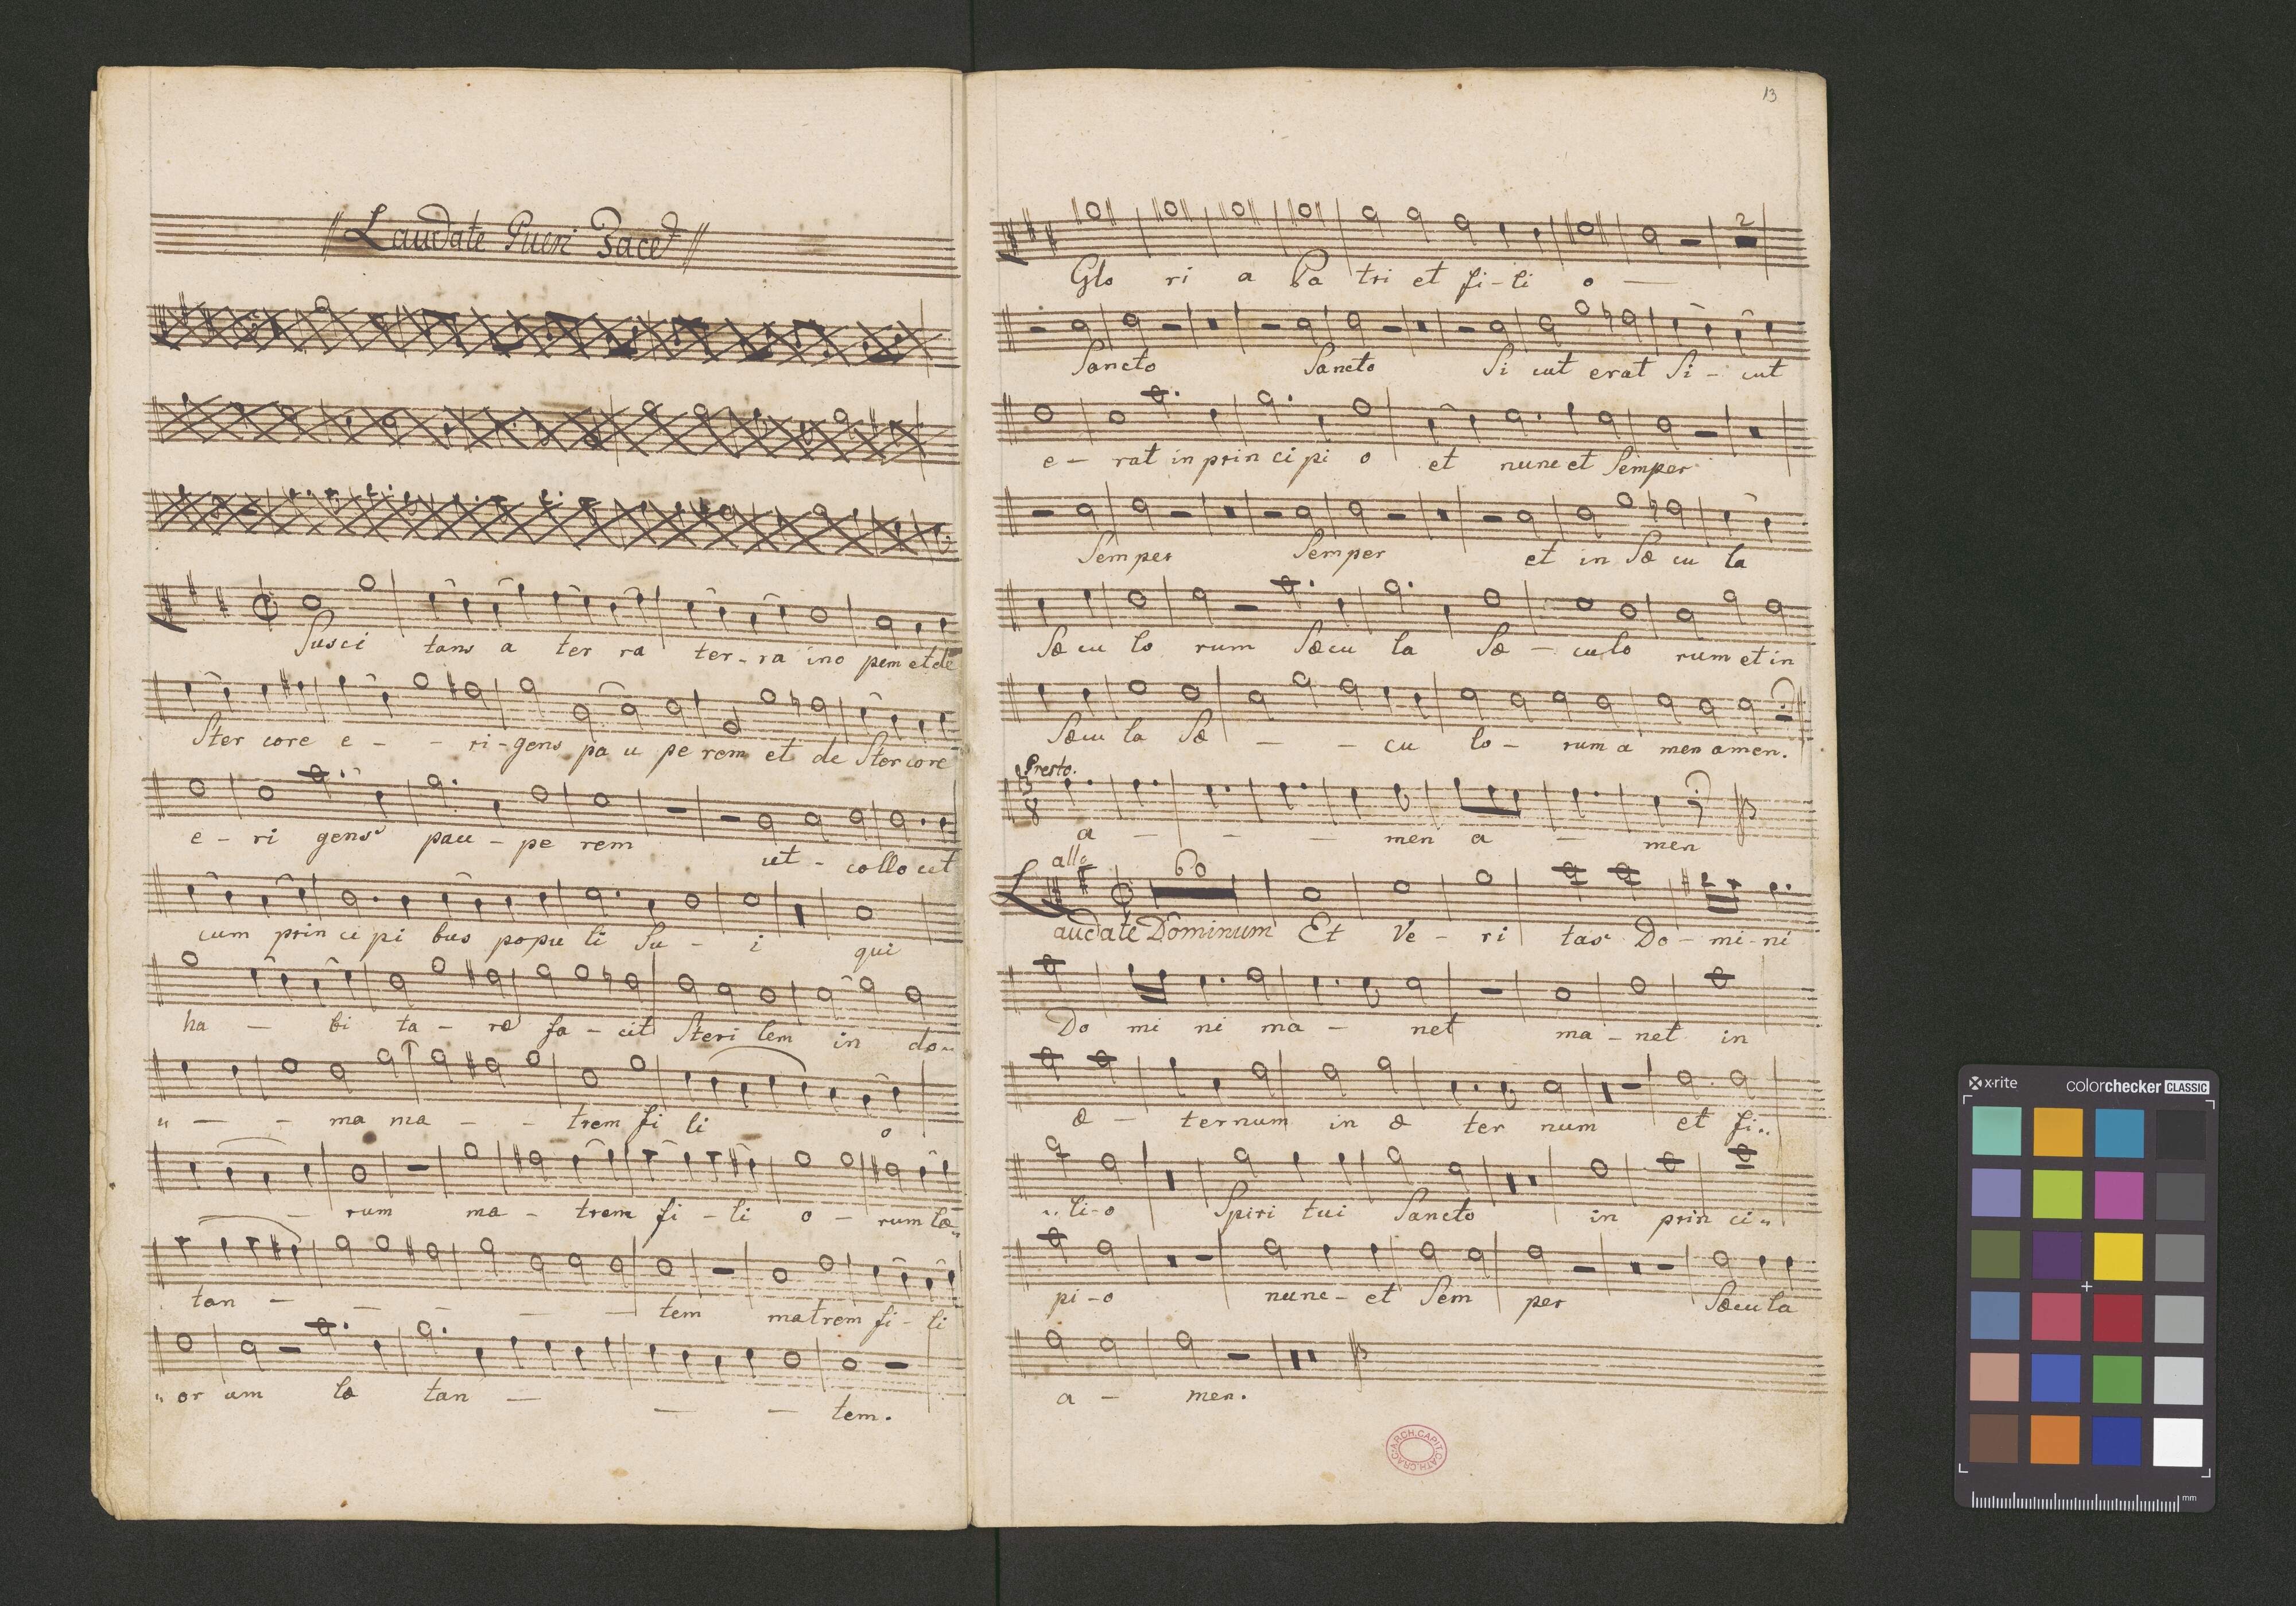 Laudate Pueri Tacet
Susci tans a ter ra ter - ra ino pem et de
Ster core e - - ri - gens pa u pe rem et de Ster core
e - ri gens pau - pe rem ut - collo cet
cum prin ci pi bus popu li Su - i qui
ha - bi ta - re fa - cit Steri lem in do..
" - - ma ma - - trem fi li o
- rum ma - trem fi - li o - rum læ..
tan - - - - - tem matrem fi - li
" or um læ tan - - - tem.
13
Glo ri a Pa tri et fi - li o -
2
Sancto Sancto Si cut erat Si - cut
e - rat in prin ci pi o et nunc et Semper
Semper Semper et in Sæ cu la
Sæ cu lo rum Sæcu la Sæ - culo rum et in
Sæcu la Sæ - - cu lo - rum a men amen.
Presto.
3
8
a - - - men a - men
allo
60
Laudate Dominum Et Ve - ri tas Do - mi - ni
Do mi ni ma - net ma - net in
æ - ternum in æ ter num et fi..
.. li - o Spiri tui Sancto in prin ci..
pi - o nunc - et Sem per Sæcula
a - men.
ARCH. CAPIT. CATH. CRAC.
x-rite
colorchecker CLASSIC
mm